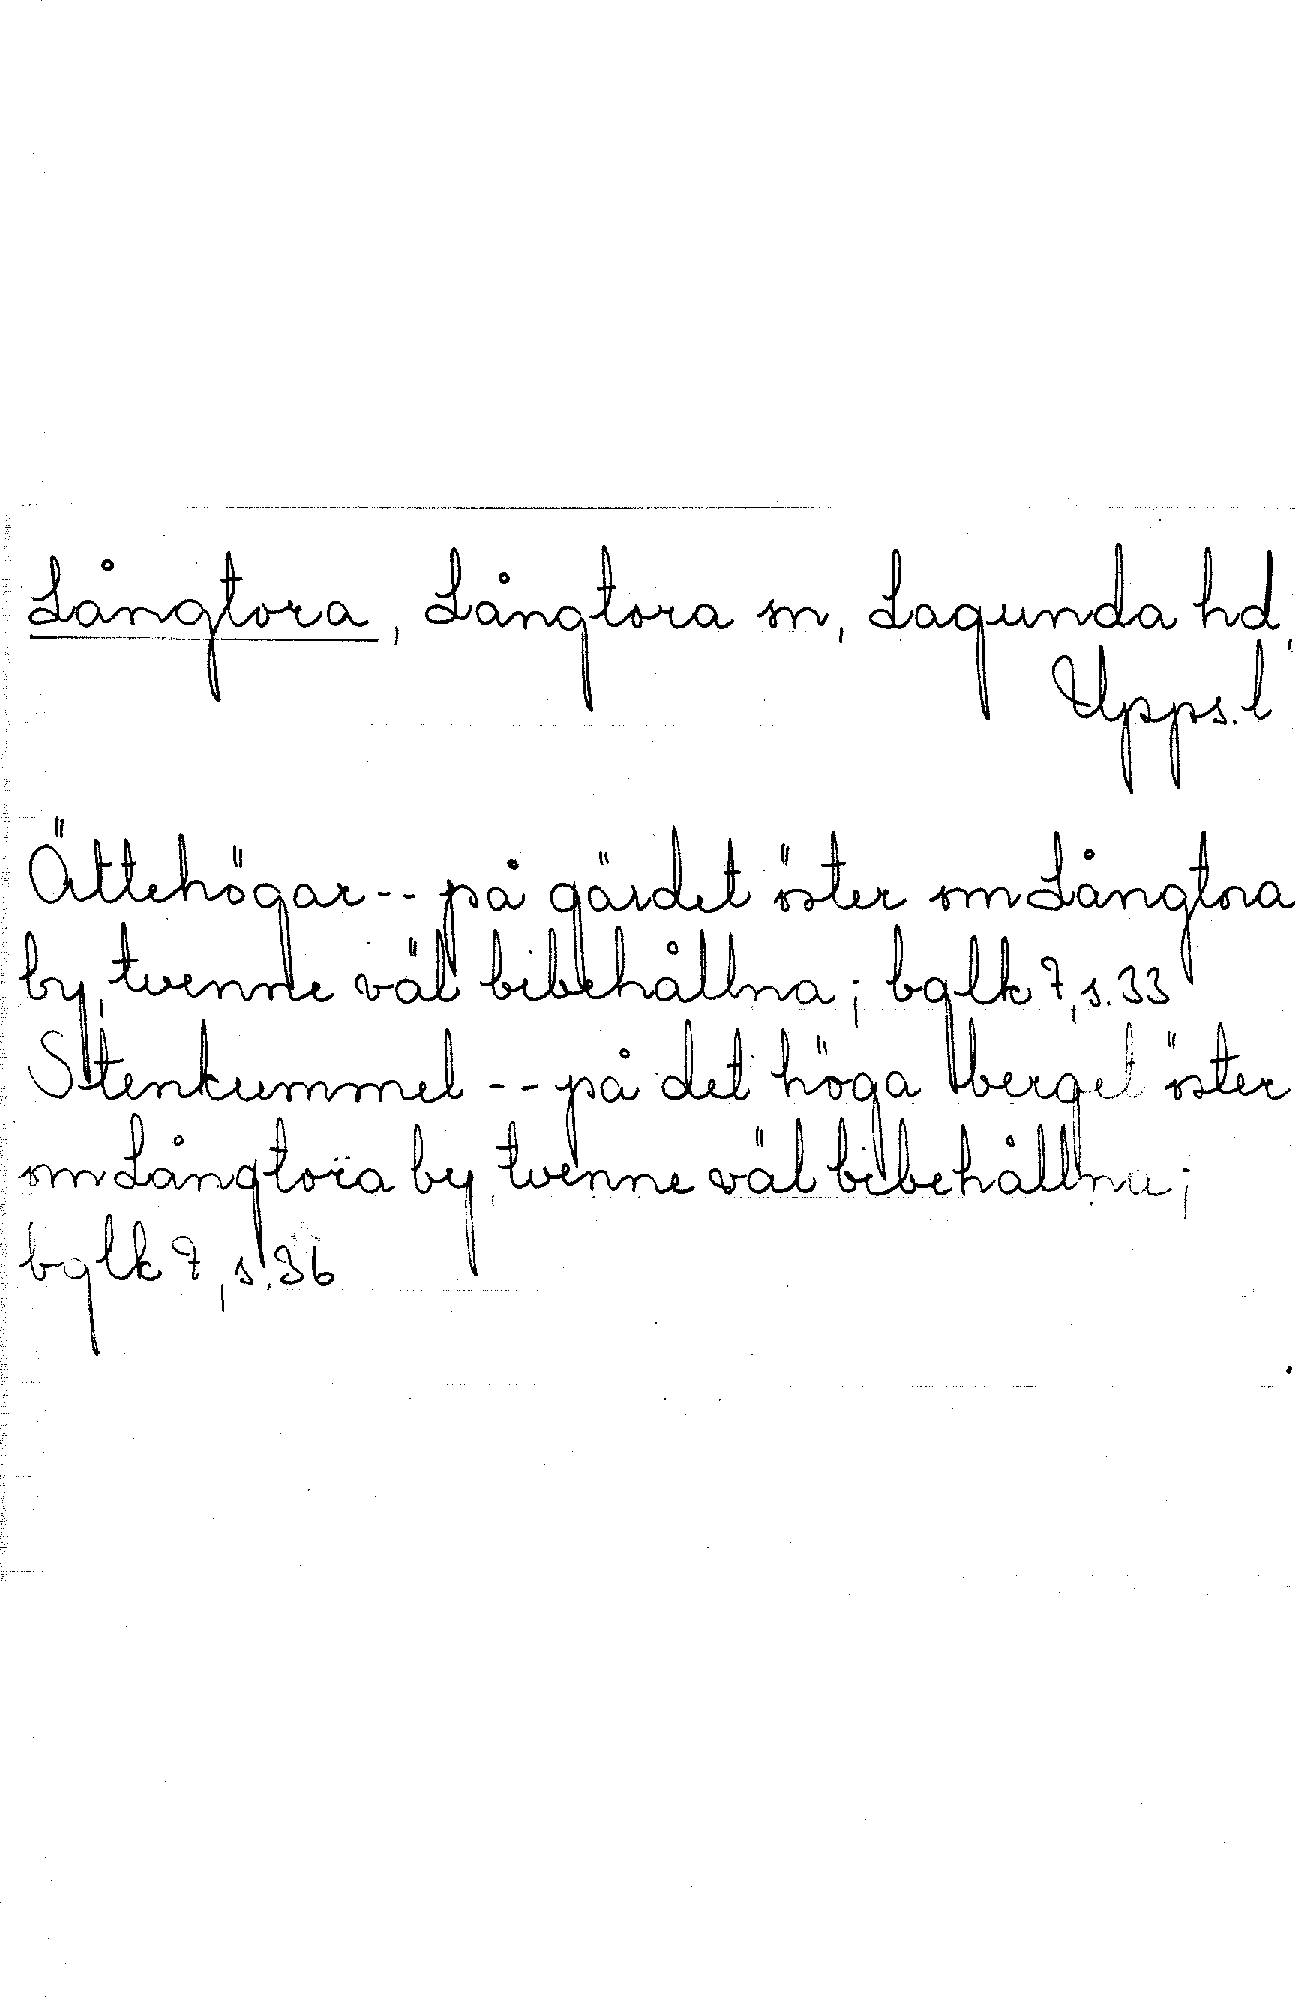 Långtora, Långtora sn, Lagunda hd,
Upps. l
Ättehögar -- på gärdet öster om Långtora
by, tvenne väl bibehållna; bglk 7, s. 33
Stenkummel -- på det höga berget öster
om Långtora by, tvenne väl bibehållna;
bglk 7, s. 36